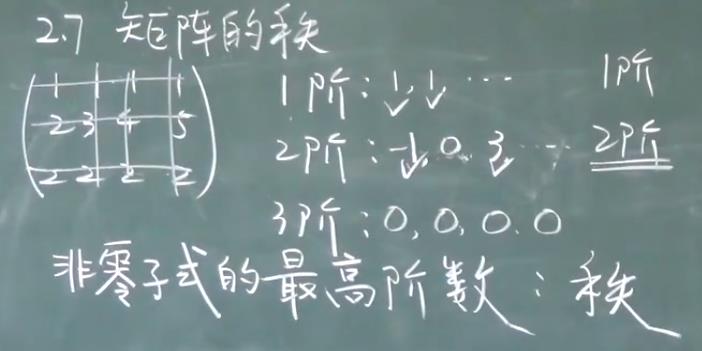 2.7 矩阵的秩
1 1 1 1
2 3 4 5
2 2 2 2
1阶:1,1 … 1阶
2阶:1,0,3 … 2阶
3阶:0,0,0.0
非零子式的最高阶数:秩